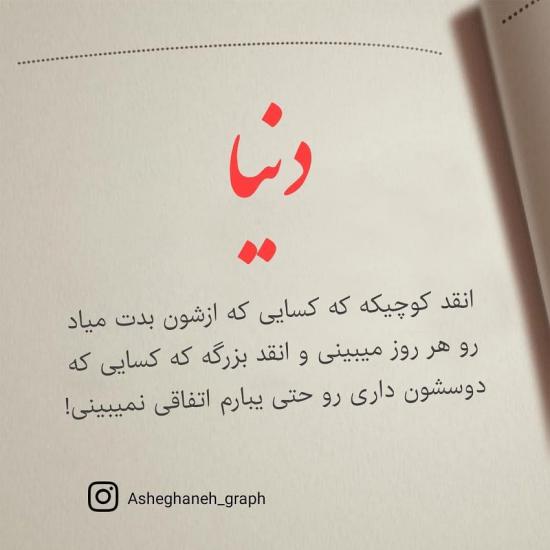 دنیا
انقد کوچیکه که کسایی که ازشون بدت میاد
رو هر روز میبینی و انقد بزرگه که کسایی که
دوسشون داری رو حتی یبارم اتفاقی نمیبینی!
Asheghaneh_graph